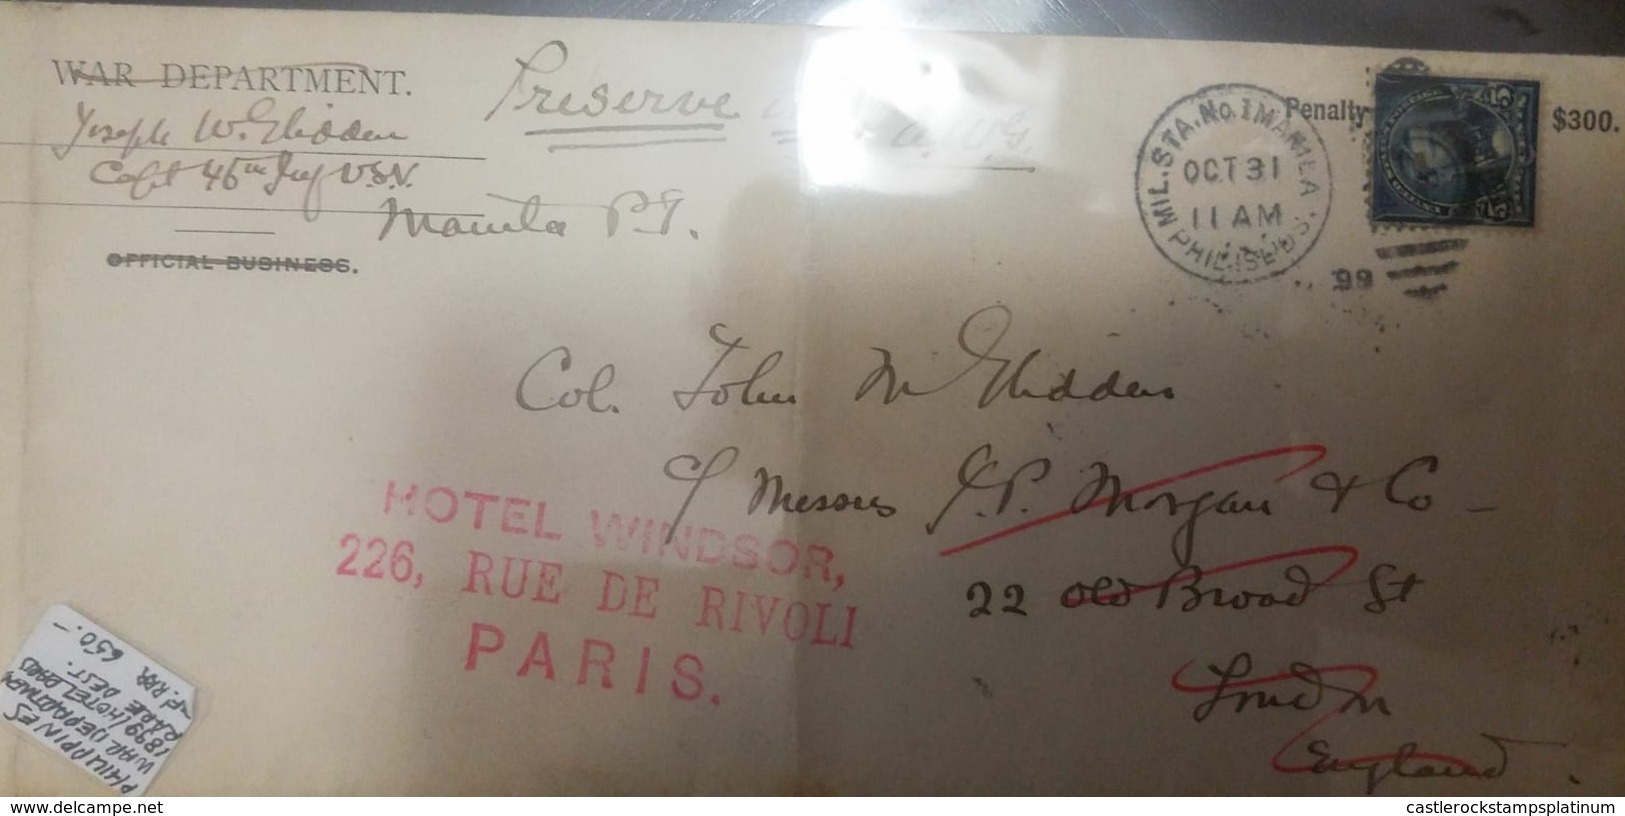 WAR DEPARTMENT.
Joseph W. Glidden
Capt 46th Inf U.S.V.
Manila P.I.
OFFICIAL BUSINESS.
Preserve
Penalty $300.
MIL. STA. No. 1 MANILA
PHIL. ISL'DS.
OCT 31
11 AM
99
15 15
Col. John M Glidden
c/ Messrs J.P. Morgan & Co
22 Old Broad St
London
England.
HOTEL WINDSOR,
226, RUE DE RIVOLI
PARIS.
PHILIPPINES
WAR DEPARTMEN
1899/HOTEL PARIS
RARE DEST.
VF. RRR 650.-
www.delcampe.net
castlerockstampsplatinum